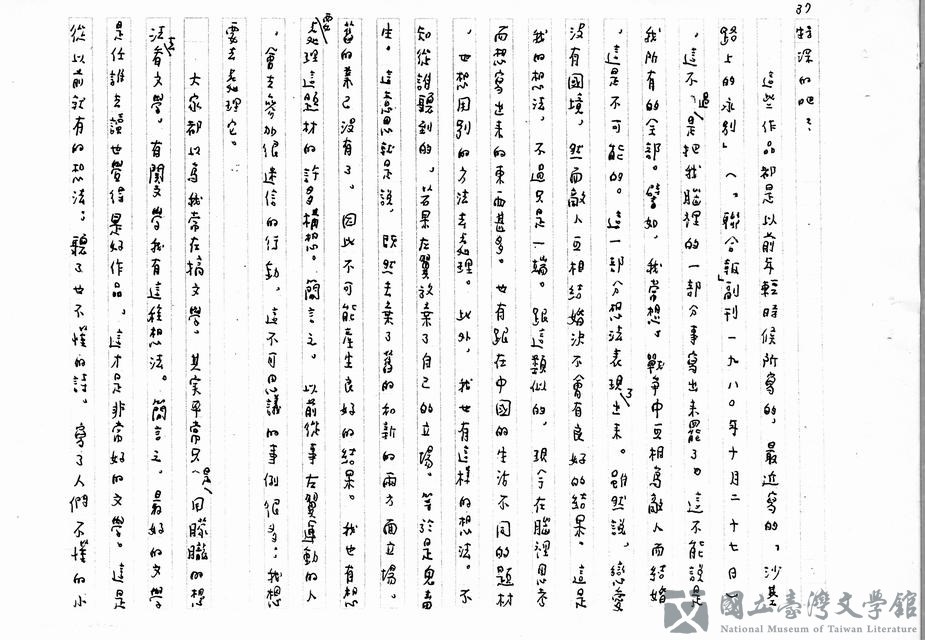 37
特深的吧？
這些作品都是以前年輕時候所寫的，最近寫的，沙基
路上的永別」（「聯合報」副刊一九八〇年十月二十七日）
，這不過是把我腦裡的一部分事寫出來罷了。這不能說是
我所有的全部。譬如，我常想。戰爭中互相為敵人而結婚
，這是不可能的。這一部分想法表現了出來。雖然說，戀愛
沒有國境，然而敵人互相結婚決不會有良好的結果。這是
我的想法，不過只是一端。跟這類似的，現今在腦裡思考
而想寫出來的東西甚多。也有跟在中國的生活不同的題材
，也想用別的方法去處理。此外，我也有這樣的想法。不
知從誰聽到的，若果左翼放棄了自己的立場。等於是鬼畜
生。這意思就是說，既然去棄了舊的和新的兩方面立場。
舊的葉已沒有了。因此不可能產生良好的結果。我也有想
要處理這題材的許多構想。簡言之。以前從事左翼運動的人
，會去參加很迷信的行動，這不可思議的事例很多，我想
要去處理它。
大家都以為我常在搞文學。其實平常只是用朦朧的想
法去看文學。有關文學我有這種想法。簡言之。最好的文學
是任誰去讀也覺得是好作品。這才是非常好的文學。這是
從以前就有的想法；聽了也不懂的詩。寫了人們不懂的小
國立臺灣文學館
National Museum of Taiwan Literature